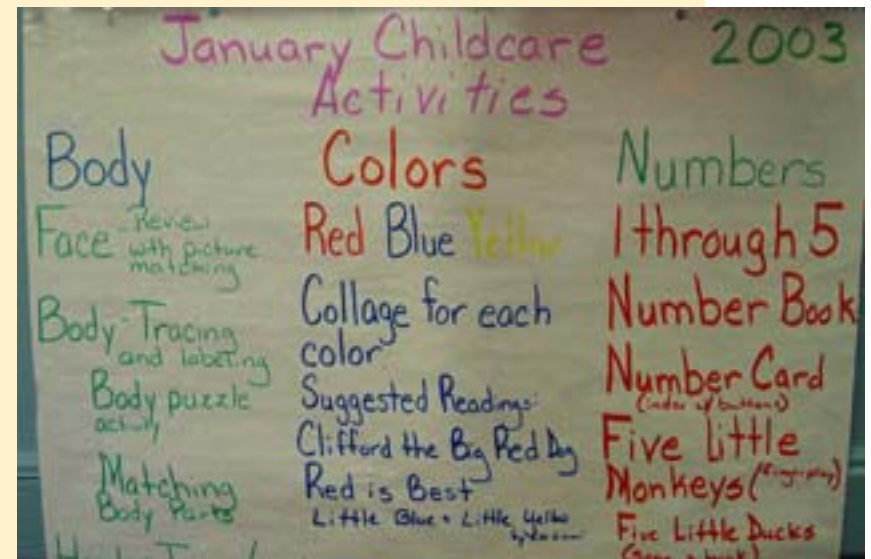 January Childcare 2003
Activities
Body
Face Review
with picture
matching
Body Tracing
and labeling
Body puzzle
activity
Matching
Body Parts
Colors
Red Blue Yellow
Collage for each
color
Suggested Readings:
Clifford the Big Red Dog
Red is Best
Little Blue + Little Yellow
Numbers
1 through 5
Number Book
Number Card
Five little
Monkeys (fingerplay)
Five Little Ducks